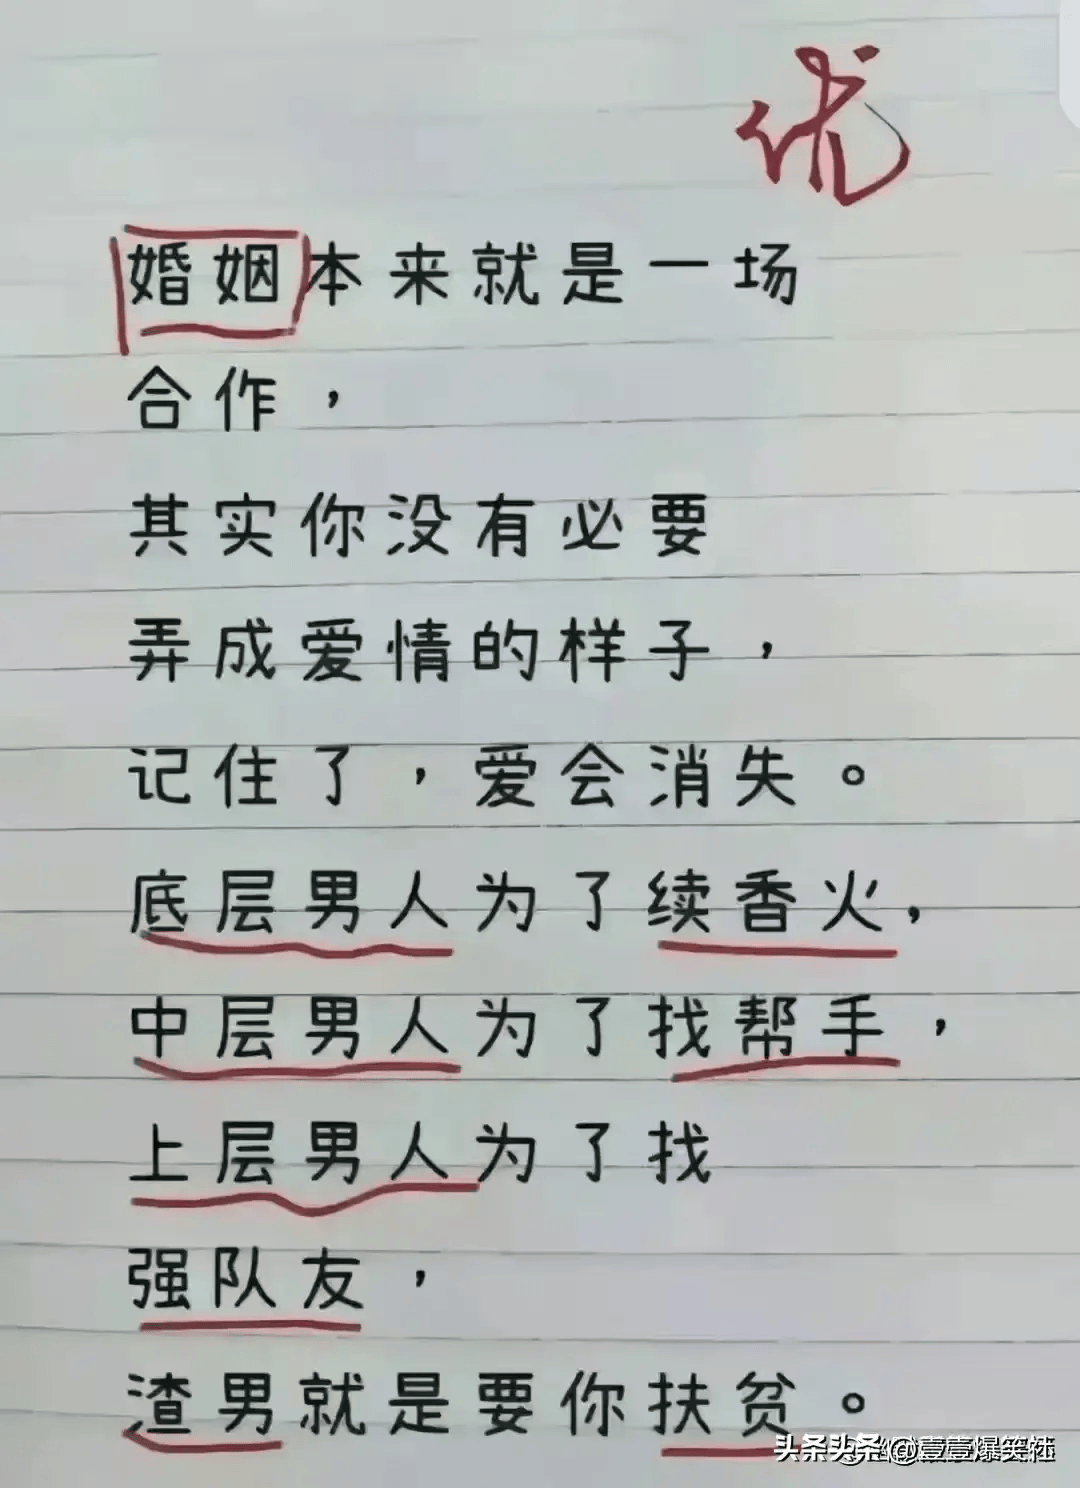 优
婚姻本来就是一场
合作，
其实你没有必要
弄成爱情的样子，
记住了，爱会消失。
底层男人为了续香火，
中层男人为了找帮手，
上层男人为了找
强队友，
渣男就是要你扶贫。
头条头条@壹壹爆笑社